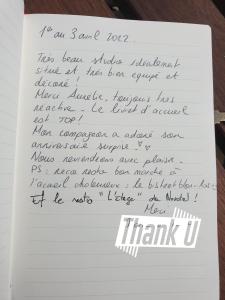 1er au 3 avril 2022.
Très beau studio idéalement
situé et très bien équipé et
décoré !
Merci Aurélie, toujours très
réactive. Le livret d'accueil
est TOP!
Mon compagnon a adoré son
anniversaire surprise
Nous reviendrons avec plaisir.
PS: resto bon marché à
l'accueil chaleureux : le bistrot bleu-
Et le resto "L'étage" de !
Thank U